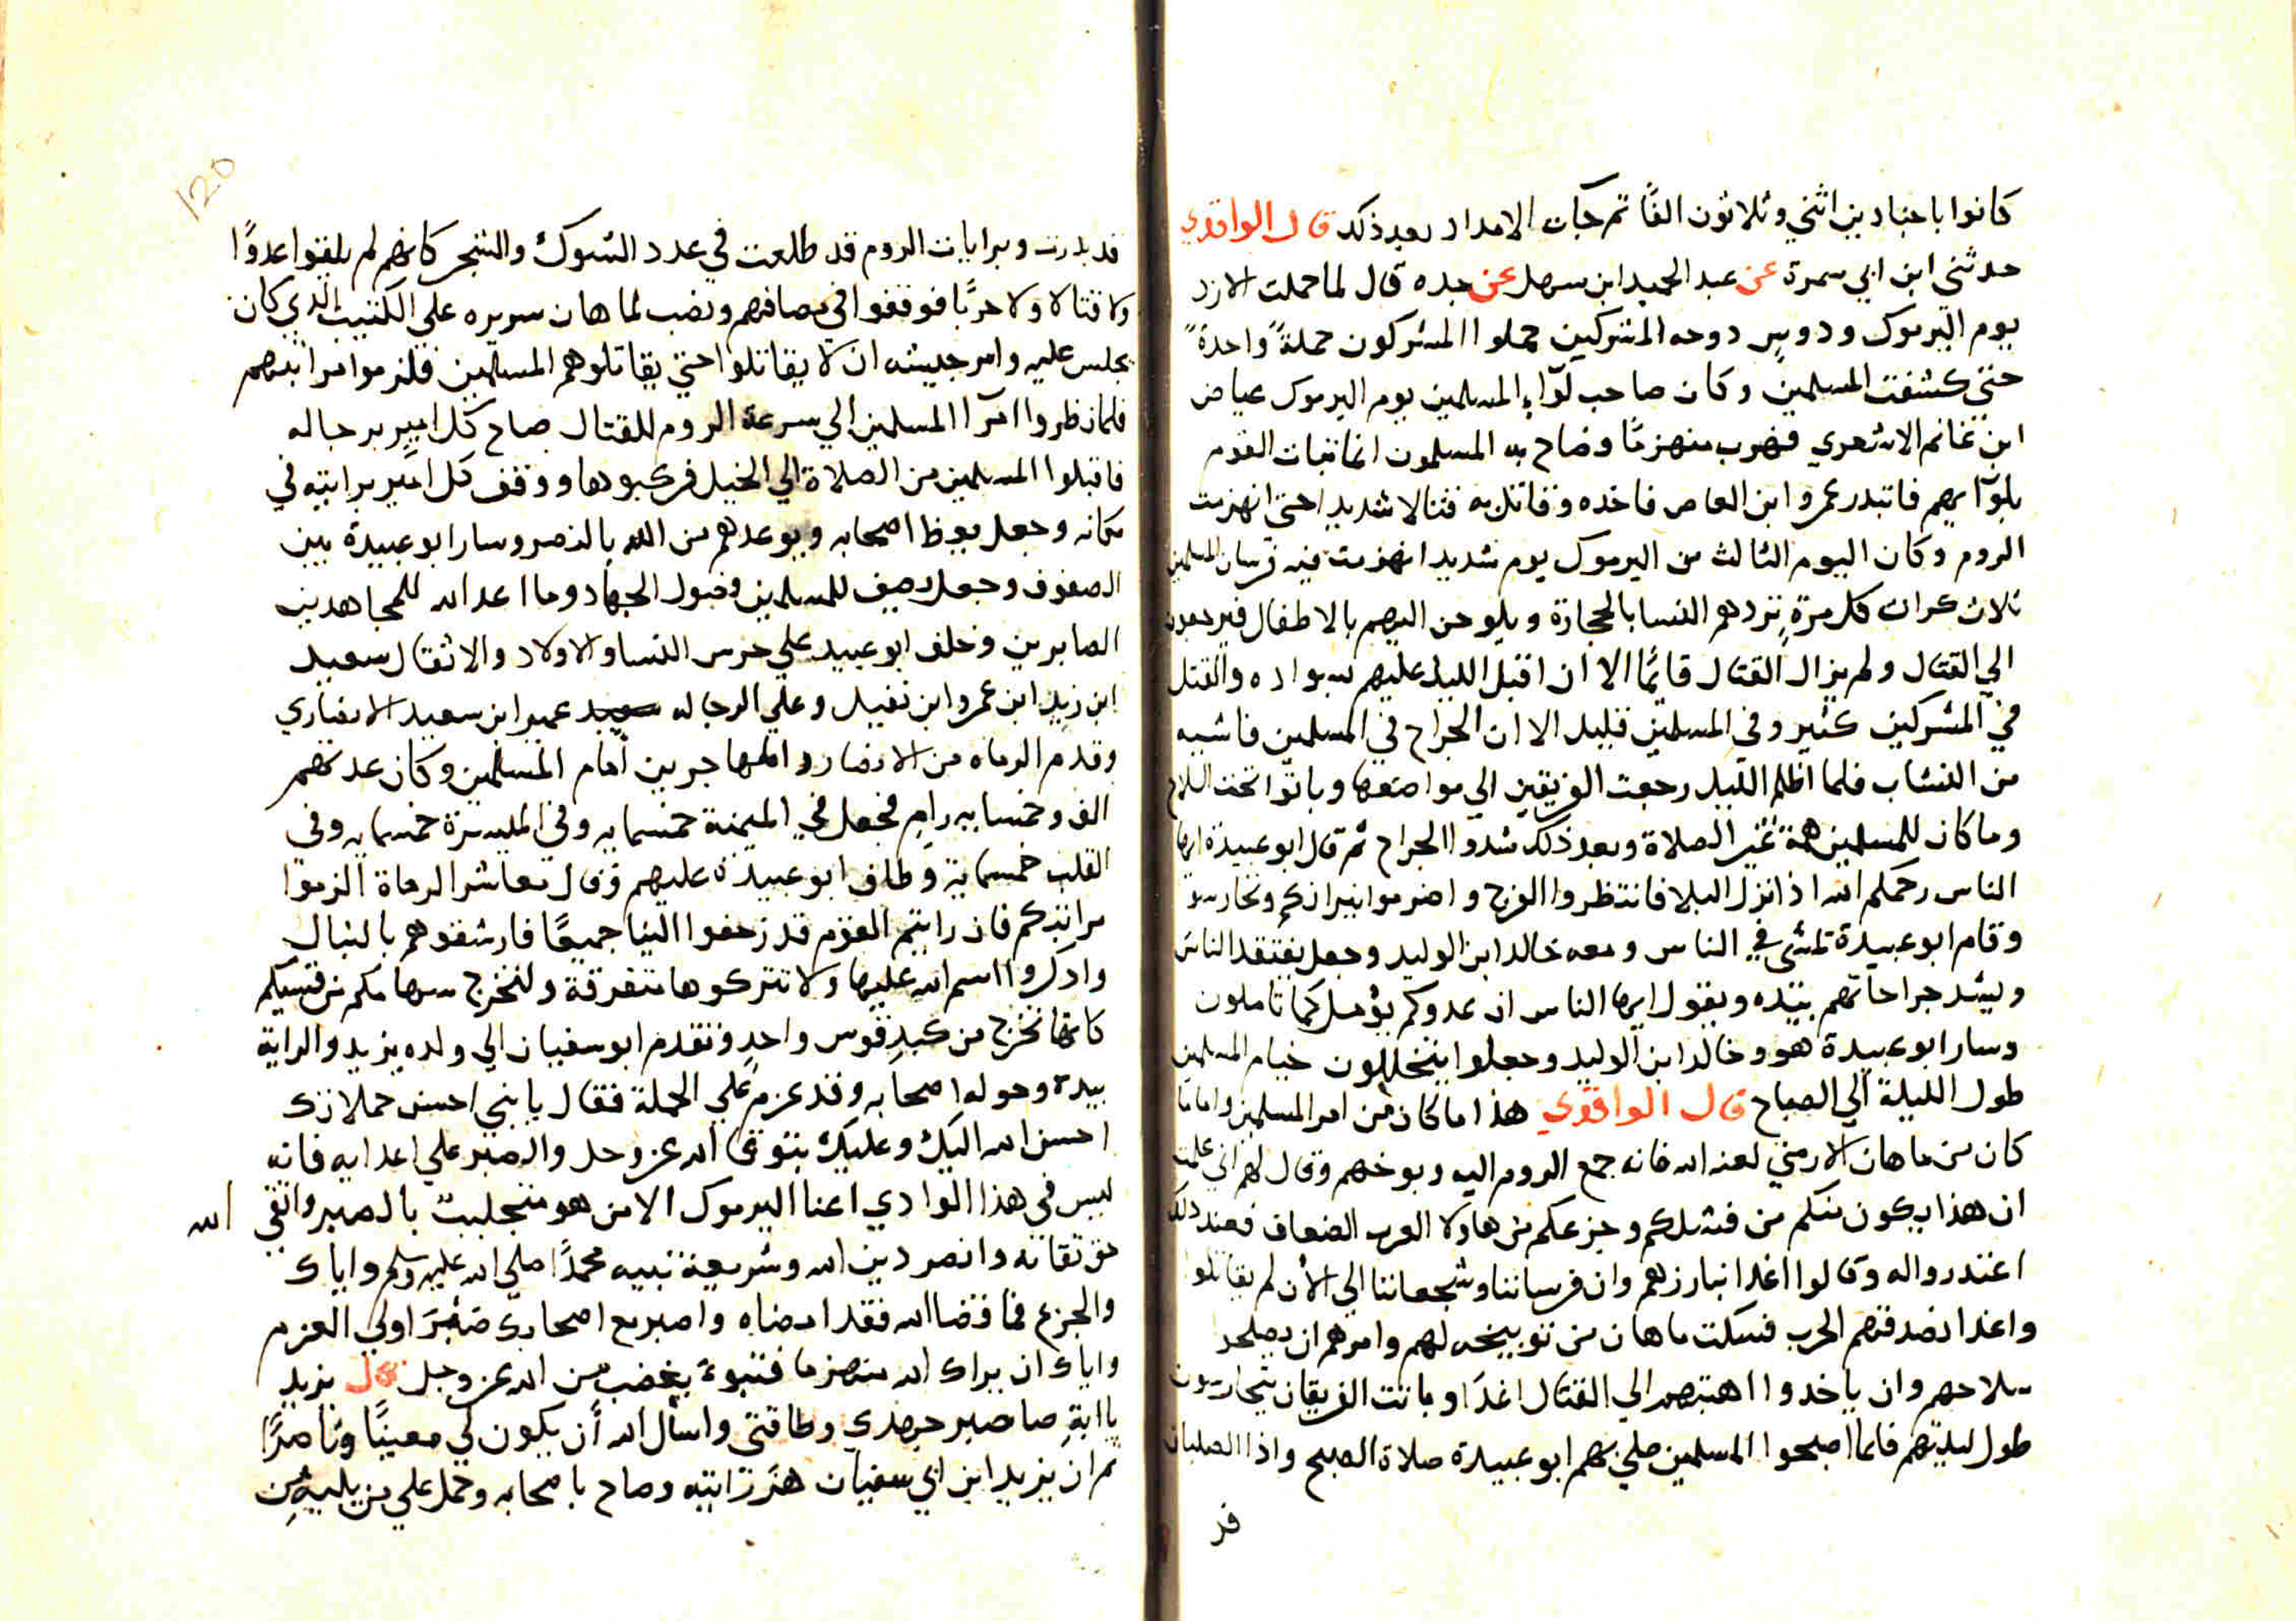 كانوا باجنادين اثني وثلاثون الفًا ثم جآت الامداد بعد ذلك قال الواقدي
حدثني ابن ابي سمرة عن عبد الحميد ابن سهل عن جده قال لما حملت الازد
يوم اليرموك ودوس دوحه المشركين حملوا المشركون حملةً واحدةً
حتي كشفت المسلمين وكان صاحب لوآء المسلمين يوم اليرموك عياض
ابن غانم الاشعري فهرب منهزمًا وصاح به المسلمون انما ثبات القوم
بلوآيهم فاتبدر عمروا ابن العاص فاخده وقاتل به قتالا شديدا حتي انهزمت
الروم وكان اليوم الثالث من اليرموك يوم شديد انهزمت فيه فرسان المسلمين
ثلاث كرات كل مرةٍ تردهم النسا بالحجارة ويلوحن اليهم بالاطفال فيرجعون
الي القتال ولم يزال القتال قائمًا الا ان اقبل الليل عليهم بسواده والقتل
في المشركين كثير وفي المسلمين قليل الا ان الجراح في المسلمين فاشيه
من النشاب فلما اظلم الليل رجعت الفريقين الي مواضعها وباتوا تحت السلاح
وما كان للمسلمين همة غير الصلاة وبعد ذلك شدوا الجراح ثم قال ابو عبيدة ايها
الناس رحمكم الله اذا نزل البلا فانتظروا الفرج واضرموا نيرانكم وتحارسوا
وقام ابو عبيدة تمشي في الناس ومعه خالد ابن الوليد وجعل يفتقد الناس
ويشد جراحاتهم بيده ويقول ايها الناس ان عدوكم يؤمل كما تاملون
وسار ابو عبيدة هو وخالد ابن الوليد وجعلوا يتخللون خيام المسلمين
طول الليلة الي الصباح قال الواقدي هذا ما كان من امر المسلمين واما ما
كان من ماهان الارمني لعنه الله فانه جمع الروم اليه وبوخهم وقال لهم اني علمت
ان هذا يكون منكم من فشلكم وجزعكم من هاولا العرب الضعاف فعند ذلك
اعتدروا له وقالوا اغدا نبارزهم وان فرساننا وشجعاننا الي الأن لم يقاتلوا
واغدا نصدقهم الحرب فسكت ماهان من توبيخه لهم وامرهم ان يصلحد
سلاحهم وان ياخدوا اهبتهم الي القتال اغدًا وباتت الفريقان يتحارسون
طول ليلتهم فلما اصبحوا المسلمين صلي بهم ابو عبيدة صلاة الصبح واذا الصلبان
قد
قد بدرت وبرايات الروم قد طلعت في عدد الشوك والشجر كانهم لم يلقوا عدوًا
ولا قتالا ولا حربًا فوقفوا في مصافهم ونصب لماهان سريره علي الكثيب الذي كان
يجلس عليه وامر جيشه ان لا يقاتلوا حتي يقاتلوهم المسلمين فلزموا مراتبهم
فلما نظروا امرآا المسلمين الي سرعة الروم للقتال صاح كل امير برجاله
فاقبلوا المسلمين من الصلاة الي الخيل فركبوها ووقف كل امير برايته في
مكانه وجعل يعظ اصحابه ويوعدهم من الله بالنصر وسار ابو عبيدة بين
الصفوف وجعل يصف للمسلمين وقبول الجهاد وما اعد الله للمجاهدين
الصابرين وخلف ابو عبيد علي حرس النسا والاولاد والاثقال سعيد
ابن زيد ابن عمروا ابن نفيل وعلي الرجاله عمير ابن سعيد الانصاري
وقدم الرماه من الانصار والمهاجرين أمام المسلمين وكان عدتهم
الف وخمسمايه رامٍ فجعل في الميمنة خمسمايه وفي الميسرة خمسمايه وفي
القلب خمسماية وطاف ابو عبيدة عليهم وقال معاشر الرماة الزموا
مراتبكم فان رايتم القوم قد زحفوا الينا جميعًا فارشقوهم بالنبال
وادكروا اسم الله عليها ولا تتركوها متفرقة ولتخرج سهامكم من قسيكم
كانها تخرج من كبد قوس واحدٍ وتقدم ابو سفيان الي ولده يزيد والراية
بيده وحوله اصحابه وقد عزم علي الحملة فقال يا بني احسن حملاتك
احسن الله اليك وعليك بتوقى الله عز وجل والصبر علي اعدايه فانه
ليس في هذا الوادي اعنا اليرموك الا من هو متجلبب بالصبر واتقي الله
حق تقاته وانصر دين الله وشريعة نبيه محمدًا صلي الله عليه وسلم واياك
والجزع فما قضا الله فقد امضاه واصبر مع اصحابك صَبْرَ اولي العزم
واياك ان يراك الله منهزما فتبوء بغضب من الله عز وجل قال يزيد
يا ابةِ صاصبر جهدي وطاقتي واسأل الله أن يكون لي معينًا وناصرًا
ثم ان يزيد ابن ابي سفيان هز رايته وصاح باصحابه وحمل علي من يليه من
120